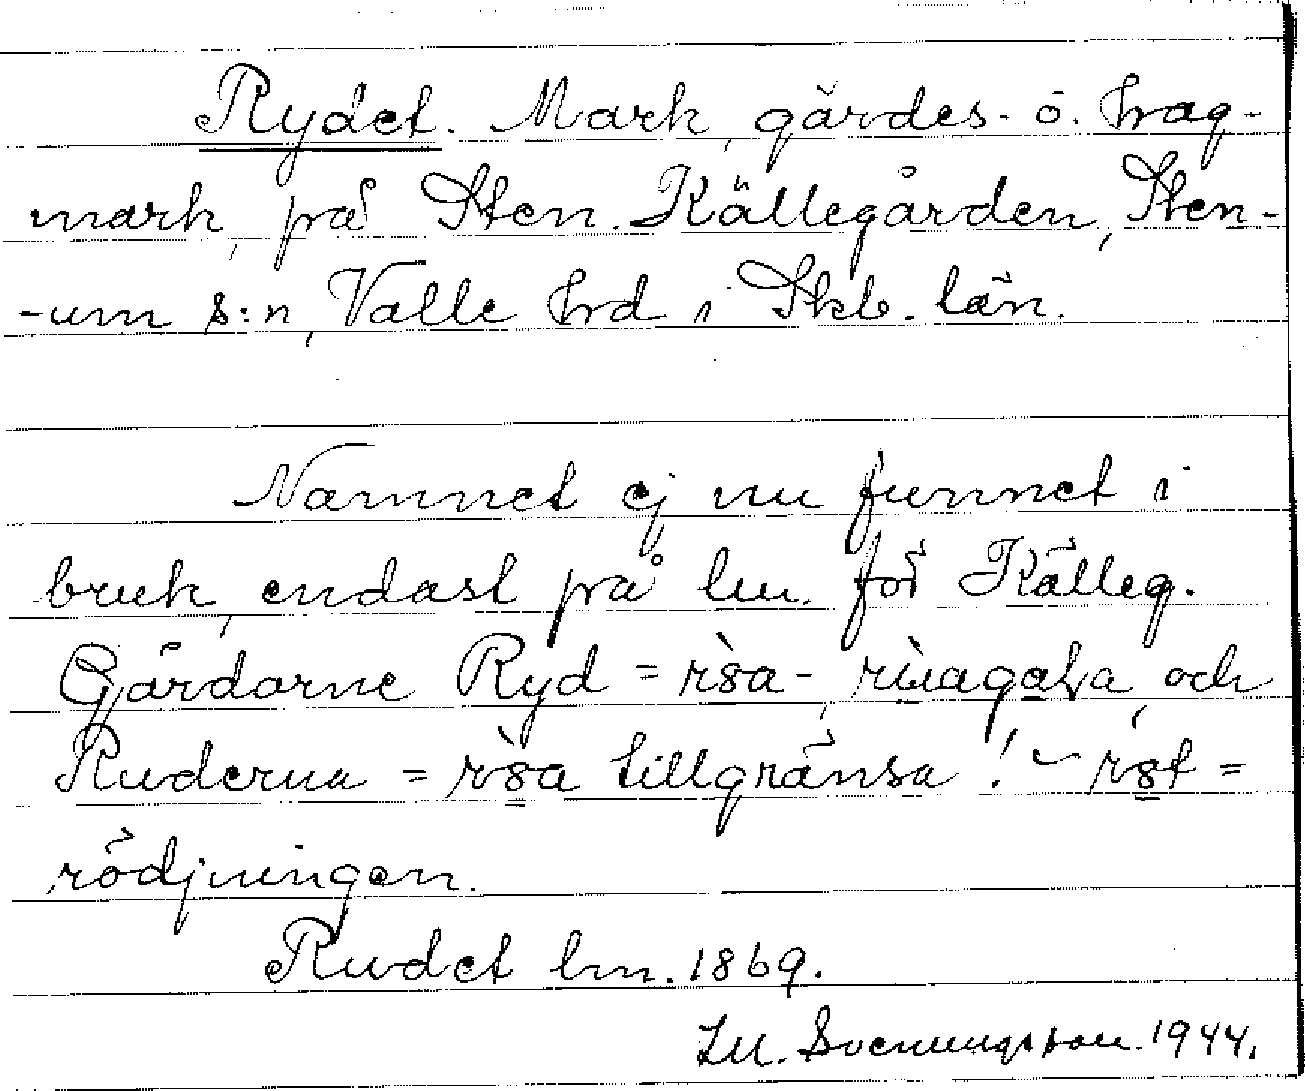 Rydet. Mark, gärdes- o. hag-
mark, på Sten. Källegården, Sten-
-um s:n, Valle hrd i Skb. län.
Namnet ej nu funnet i
bruk, endast på lm. för Källeg.
Gårdarne Ryd = och
Ruderna = tillgränsa!
rödjningen.
Rudet lm. 1869.
Svenungsson 1944.